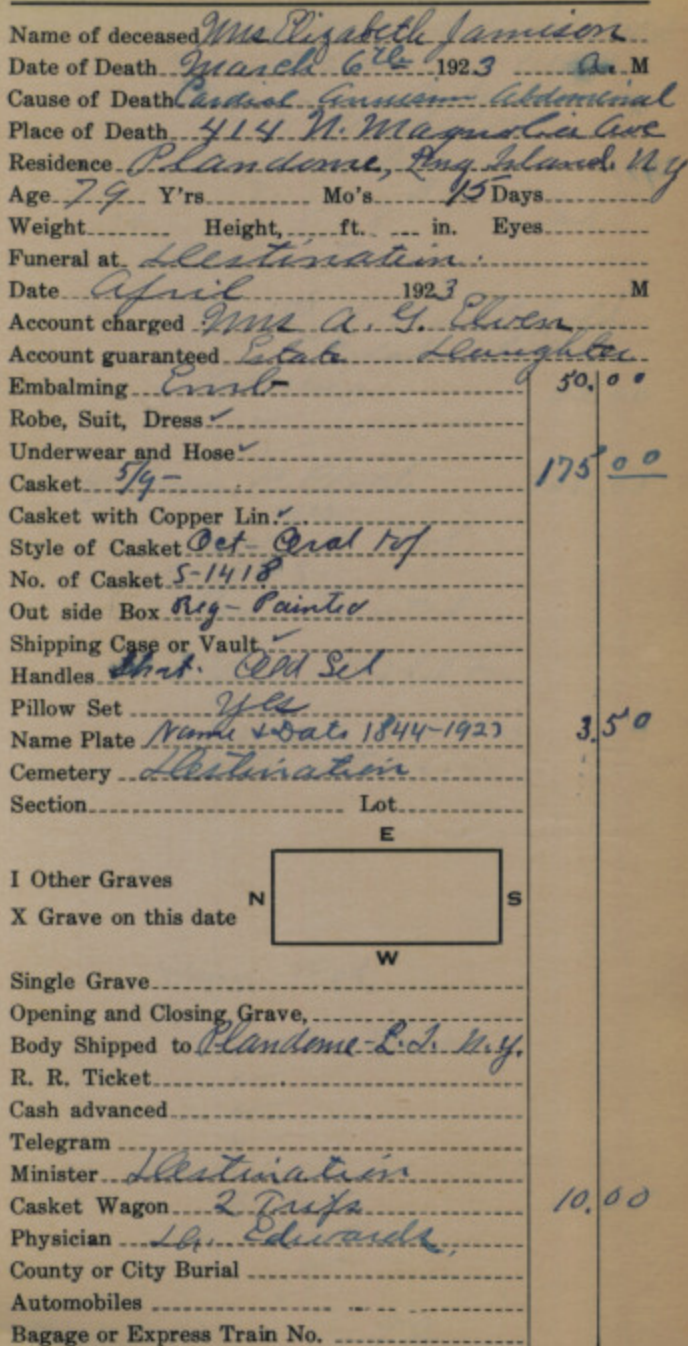 Name of deceased Mrs Elizabeth Jamison
Date of Death March 6th 1923 a. M
Cause of Death Cardial Annuism Abdominal
Place of Death 414 N. Magnolia Ave
Residence Plandome, Long Island. N y
Age 79 Y'rs Mo's 15 Days
Weight Height, ft. in. Eyes
Funeral at Destination.
Date April 1923 M
Account charged Mrs A. G. Elven
Account guaranteed Estate Daughter
Embalming Emb 50.00
Robe, Suit, Dress ✓
Underwear and Hose ✓
Casket 5/9- 175 00
Casket with Copper Lin. ✓
Style of Casket Oct- Oval top
No. of Casket S-1418
Out side Box Reg- Painted
Shipping Case or Vault ✓
Handles Shat. Odd Set
Pillow Set Yes
Name Plate Name & Date 1844-1923 3.50
Cemetery Destination
Section Lot
E
I Other Graves
N S
X Grave on this date
W
Single Grave
Opening and Closing Grave,
Body Shipped to Plandome-L.I. N.y.
R. R. Ticket
Cash advanced
Telegram
Minister Destination
Casket Wagon 2 Trips 10.00
Physician Dr. Edwards,
County or City Burial
Automobiles
Bagage or Express Train No.